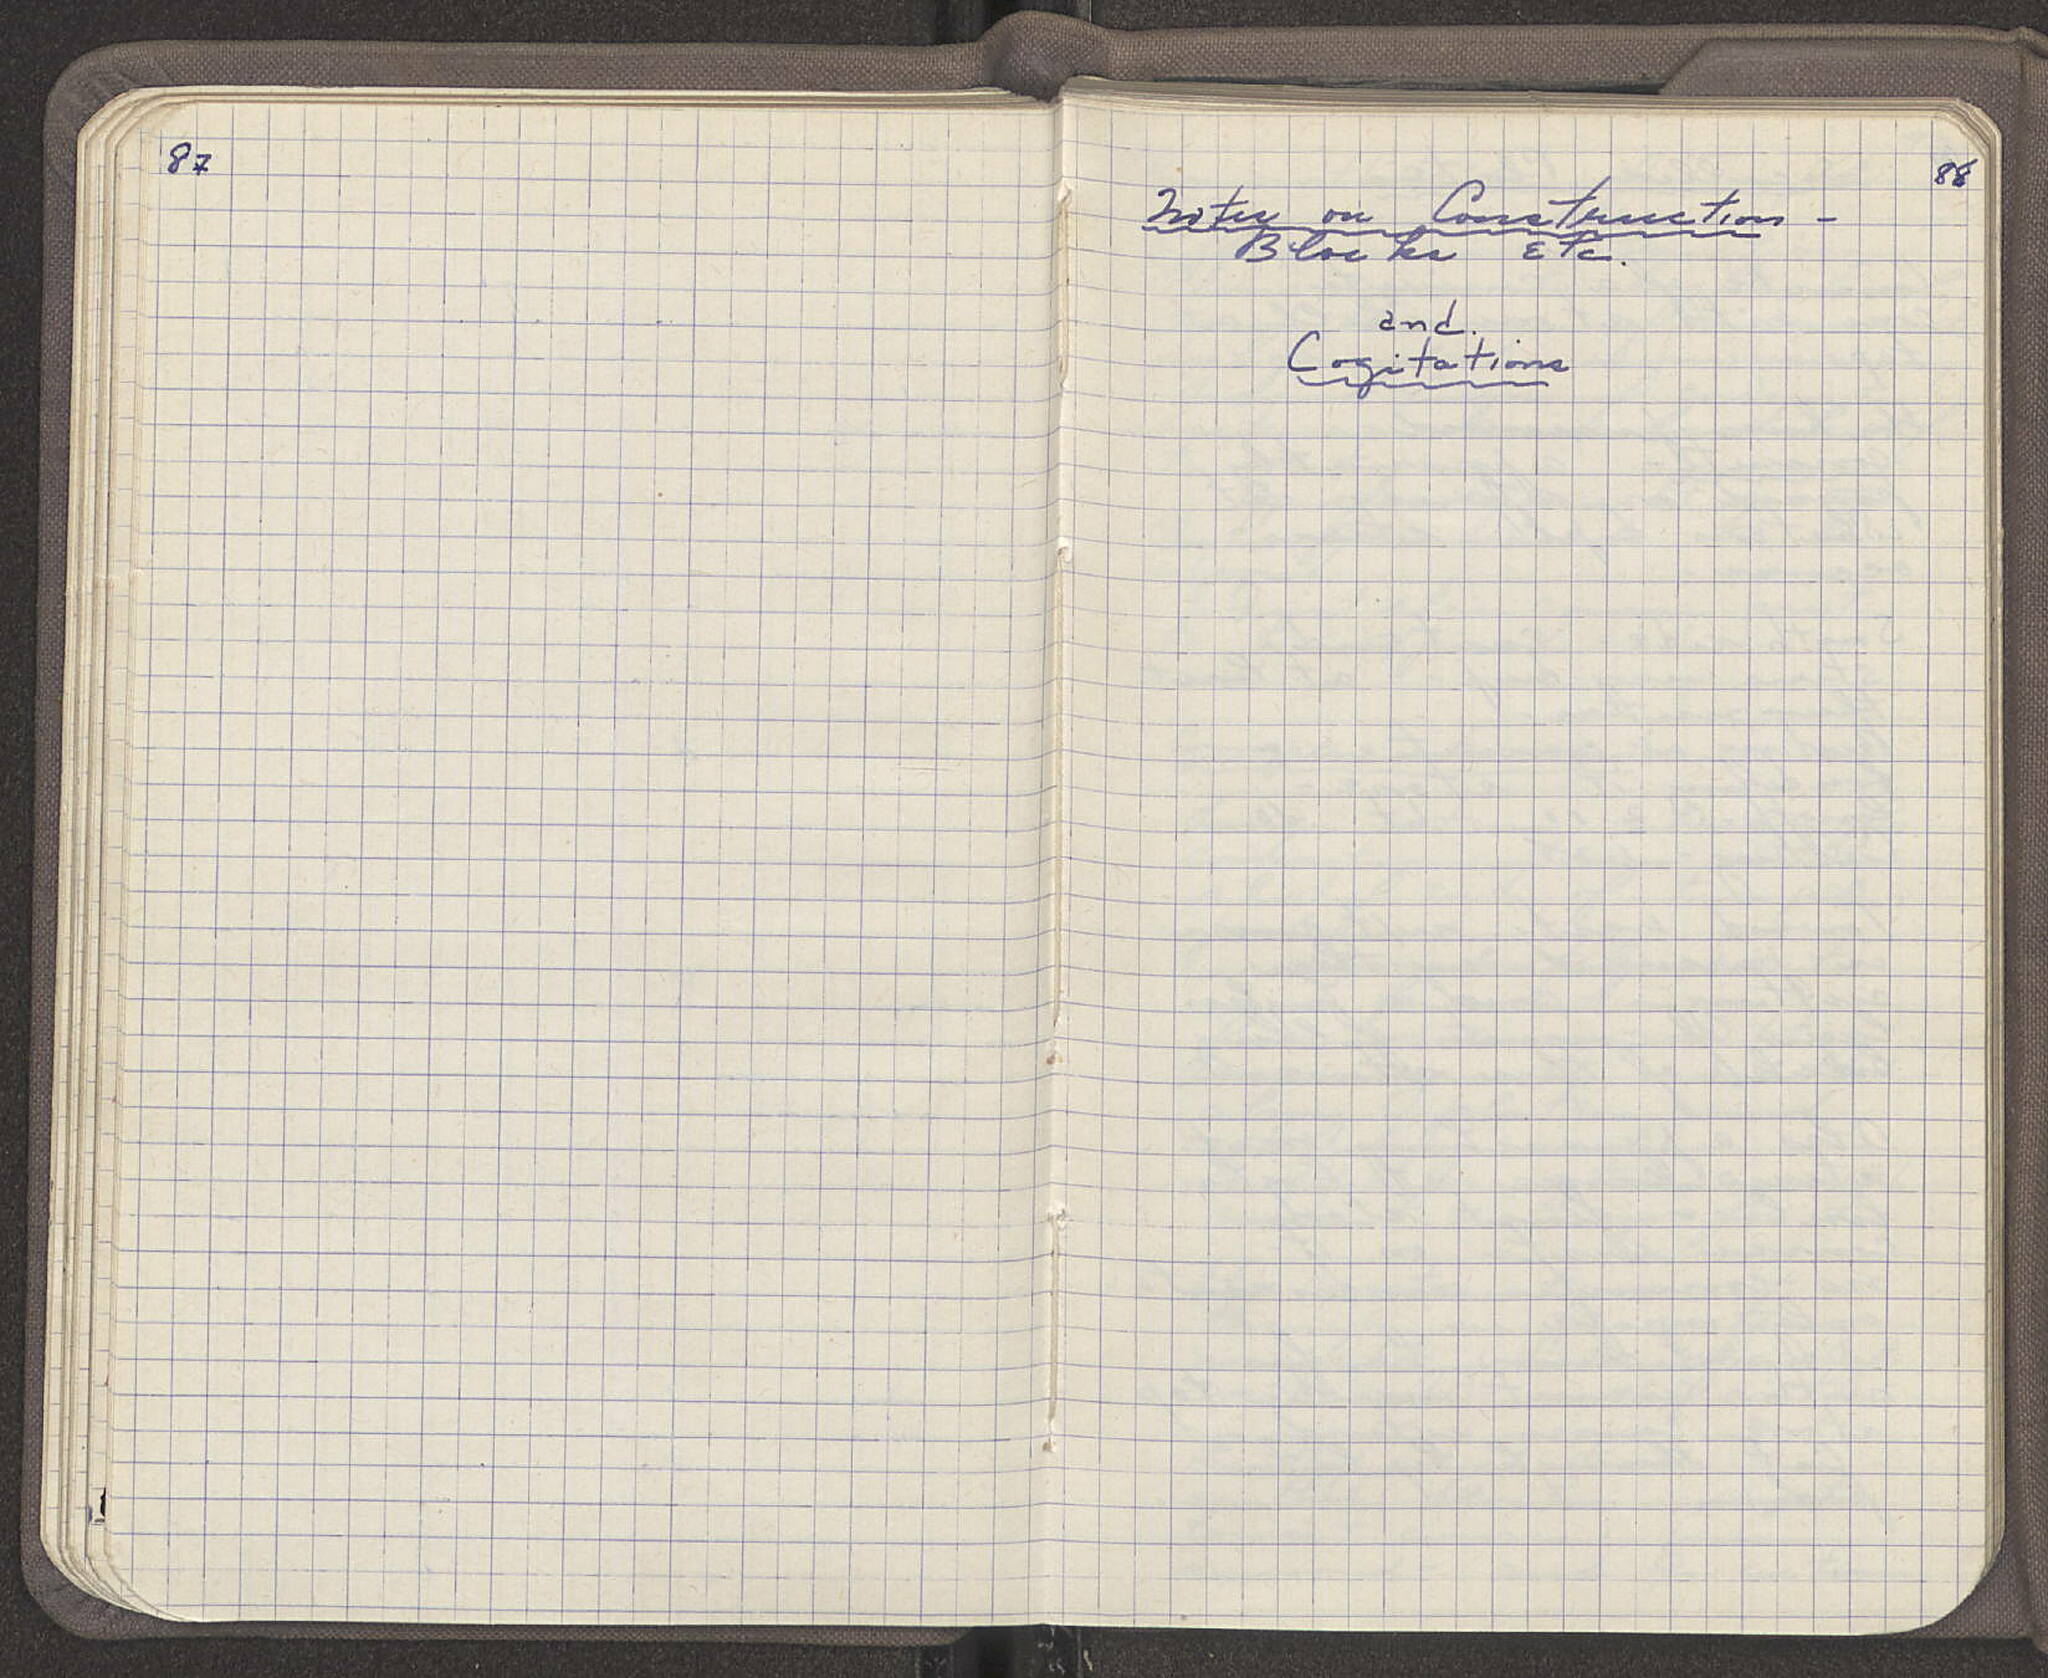 87
88
Notes on Construction -
Blocks Etc.
and.
Cogitations